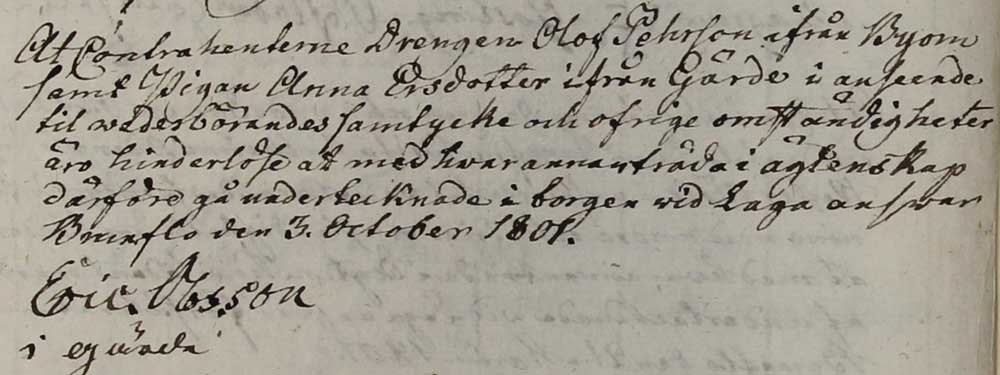 At Contrahenterne Drengen Olof Pehrson ifrån Byom
samt Pigan Anna Ersdotter ifrån Gärde i anseende
til wederbörandes samtycke och ofrige omständigheter
äro hinderlöse at med hwarannar träda i ägtenskap
därföre gå undertecknade i borgen vid Laga answar
Brunflo den 3. October 1801.
Eric Olosson
i gärde